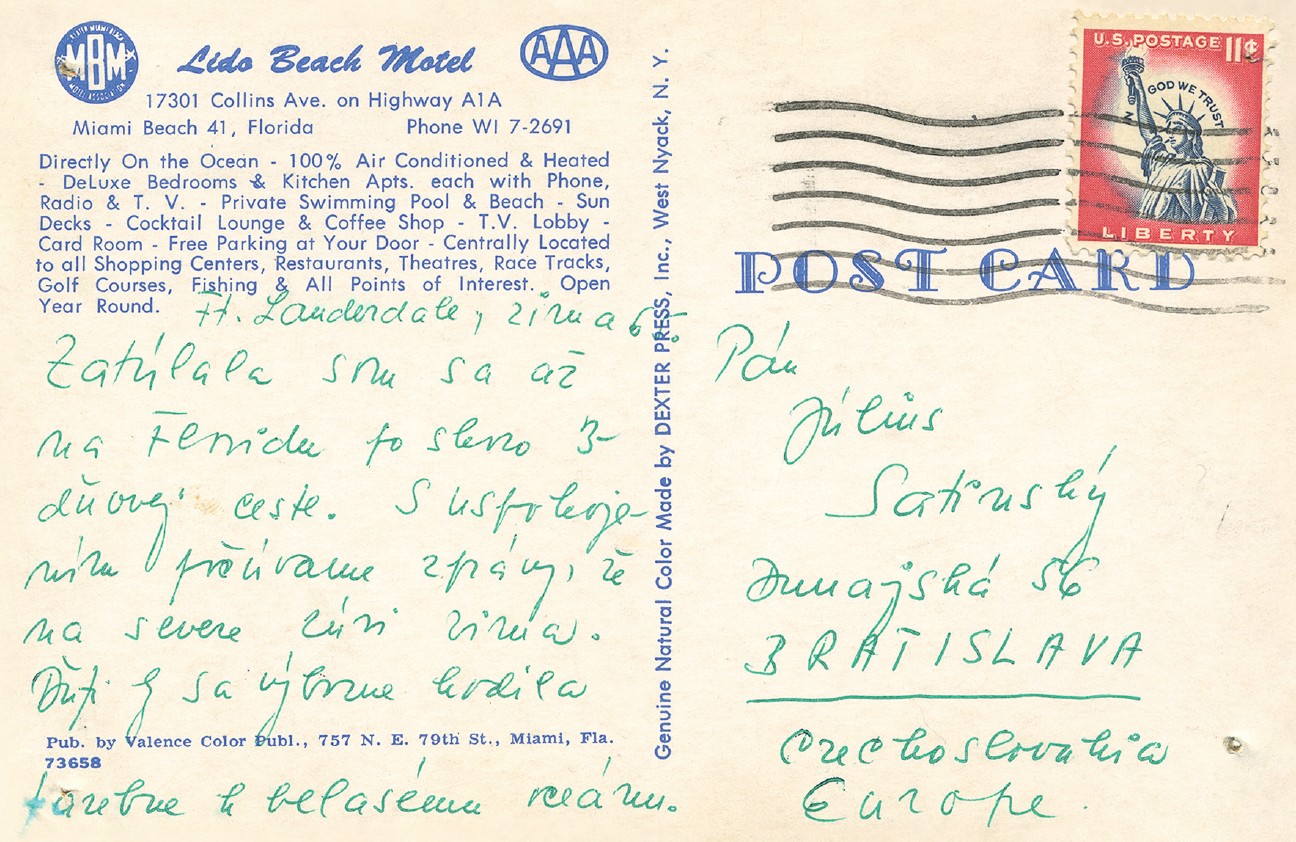 GREATER MIAMI BEACH
MBM
MOTEL ASSOCIATION
Lido Beach Motel
AAA
17301 Collins Ave. on Highway A1A
Miami Beach 41, Florida Phone WI 7-2691
Directly On the Ocean - 100% Air Conditioned & Heated
- DeLuxe Bedrooms & Kitchen Apts. each with Phone,
Radio & T. V. - Private Swimming Pool & Beach - Sun
Decks - Cocktail Lounge & Coffee Shop - T.V. Lobby -
Card Room - Free Parking at Your Door - Centrally Located
to all Shopping Centers, Restaurants, Theatres, Race Tracks,
Golf Courses, Fishing & All Points of Interest. Open
Year Round.
Ft. Lauderdale, zima
Zatúlala som sa až
na Floridu po skoro 3-
dňovej ceste. S uspokoje-
ním prežívame zprávy, že
na severe zúri zima.
by sa výborne hodila
farebne k belasému oceánu.
Pub. by Valence Color Publ., 757 N. E. 79th St., Miami, Fla.
73658
Genuine Natural Color Made by DEXTER PRESS, Inc., West Nyack, N. Y.
U.S. POSTAGE 11¢
IN GOD WE TRUST
LIBERTY
POST CARD
Pán
Július
Satinský
Dunajská 56
BRATISLAVA
Czechoslovakia
Europe.